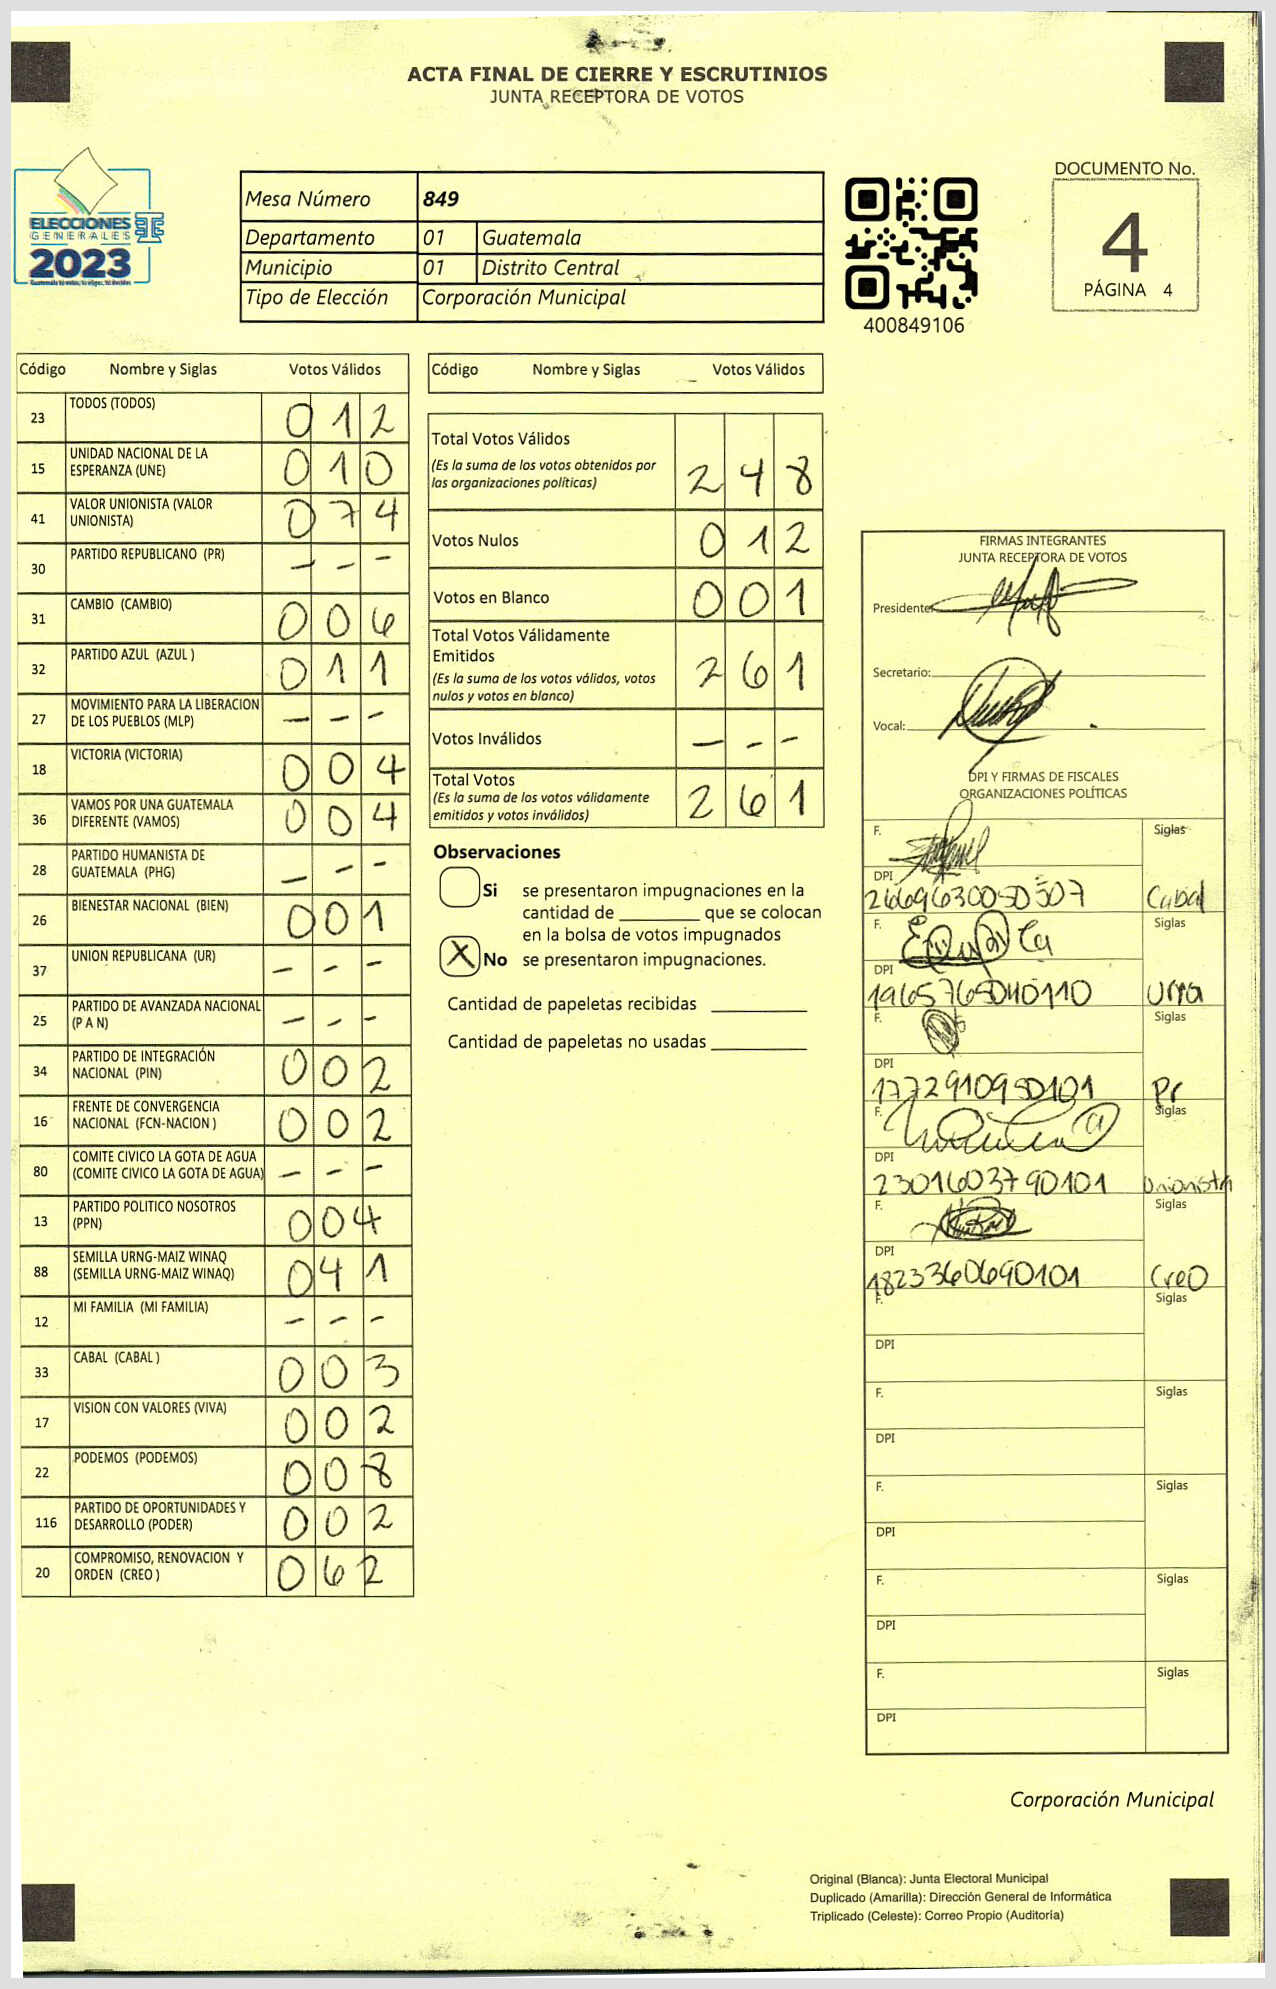 ACTA FINAL DE CIERRE Y ESCRUTINIOS
JUNTA RECEPTORA DE VOTOS
ELECCIONES
GENERALES
2023
Mesa Número 849
Departamento 01 Guatemala
Municipio 01 Distrito Central
Tipo de Elección Corporación Municipal
400849106
DOCUMENTO No.
4
PÁGINA 4
Código Nombre y Siglas Votos Válidos
23 TODOS (TODOS) 012
15 UNIDAD NACIONAL DE LA
ESPERANZA (UNE) 010
41 VALOR UNIONISTA (VALOR
UNIONISTA) 074
30 PARTIDO REPUBLICANO (PR) - - -
31 CAMBIO (CAMBIO) 006
32 PARTIDO AZUL (AZUL ) 011
27 MOVIMIENTO PARA LA LIBERACION
DE LOS PUEBLOS (MLP) - - -
18 VICTORIA (VICTORIA) 004
36 VAMOS POR UNA GUATEMALA
DIFERENTE (VAMOS) 004
28 PARTIDO HUMANISTA DE
GUATEMALA (PHG) - - -
26 BIENESTAR NACIONAL (BIEN) 001
37 UNION REPUBLICANA (UR) - - -
25 PARTIDO DE AVANZADA NACIONAL
(P A N) - - -
34 PARTIDO DE INTEGRACIÓN
NACIONAL (PIN) 002
16 FRENTE DE CONVERGENCIA
NACIONAL (FCN-NACION ) 002
80 COMITE CIVICO LA GOTA DE AGUA
(COMITE CIVICO LA GOTA DE AGUA) - - -
13 PARTIDO POLITICO NOSOTROS
(PPN) 004
88 SEMILLA URNG-MAIZ WINAQ
(SEMILLA URNG-MAIZ WINAQ) 041
12 MI FAMILIA (MI FAMILIA) - - -
33 CABAL (CABAL ) 003
17 VISION CON VALORES (VIVA) 002
22 PODEMOS (PODEMOS) 008
116 PARTIDO DE OPORTUNIDADES Y
DESARROLLO (PODER) 002
20 COMPROMISO, RENOVACION Y
ORDEN (CREO ) 062
Código Nombre y Siglas Votos Válidos
Total Votos Válidos
(Es la suma de los votos obtenidos por
las organizaciones políticas) 248
Votos Nulos 012
Votos en Blanco 001
Total Votos Válidamente
Emitidos
(Es la suma de los votos válidos, votos
nulos y votos en blanco) 261
Votos Inválidos - - -
Total Votos
(Es la suma de los votos válidamente
emitidos y votos inválidos) 261
Observaciones
Si se presentaron impugnaciones en la
cantidad de ________ que se colocan
en la bolsa de votos impugnados
X No se presentaron impugnaciones.
Cantidad de papeletas recibidas _________
Cantidad de papeletas no usadas _________
FIRMAS INTEGRANTES
JUNTA RECEPTORA DE VOTOS
Presidente:
Secretario:
Vocal:
DPI Y FIRMAS DE FISCALES
ORGANIZACIONES POLÍTICAS
F. Siglas
DPI
2669630050507 Cabal
F. Siglas
DPI
F. Siglas
DPI
1772910950101 Pr
F. Siglas
DPI
2301603790101 Unionista
F. Siglas
DPI
1823360690101 Creo
F. Siglas
DPI
F. Siglas
DPI
F. Siglas
DPI
F. Siglas
DPI
F. Siglas
DPI
Corporación Municipal
Original (Blanca): Junta Electoral Municipal
Duplicado (Amarilla): Dirección General de Informática
Triplicado (Celeste): Correo Propio (Auditoría)